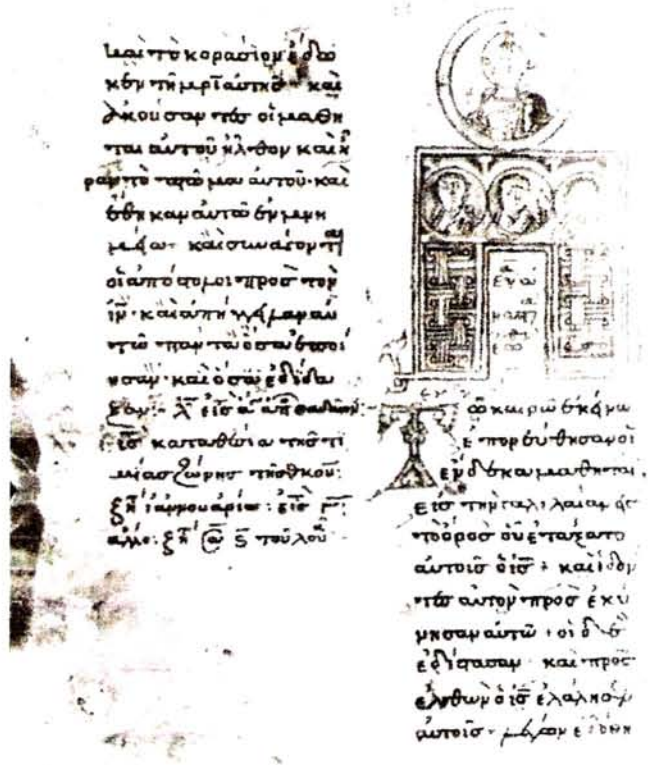 καὶ τὸ κοράσιον ἔδω
κεν τῆ μρῒ αὐτῆς· καὶ
ἀκούσαντες οἱ μαθη
ταὶ αὐτοῦ ἦλθον καὶ ἦ
ραν τὸ πτῶμα αὐτοῦ· καὶ
ἔθηκαν αὐτὸ ἐν μνη
μείω· καὶ συνάγονται
οἱ ἀπόστολοι πρὸς τὸν
ιν̅· καὶ ἀπήγγειλαν αὐ
τῶ πάντα ὅσα ἐποί
ησαν· καὶ ὅσα ἐδίδα
ξαν·
κατάθεσια τῆς τι
μίας ζώνης τῆς θκου:
ἰαννουαρίω: εἰς
ἄλλο: τοῦ λου
Τῶ καιρῶ ἐκείνω
ἐπορεύθησαν οἱ
ἕνδεκα μαθηταὶ
εἰς τὴν γαλιλαίαν εἰς
τὸ ὄρος οὗ ἐτάξατο
αὐτοῖς ὁ ις̅· καὶ ἰδόν
τες αὐτὸν προσεκύ
νησαν αὐτῶ· οἱ δὲ
ἐδίστασαν· καὶ προσ
ελθὼν ὁ ις̅ ἐλάλησεν
αὐτοῖς· λέγων ἐδόθη